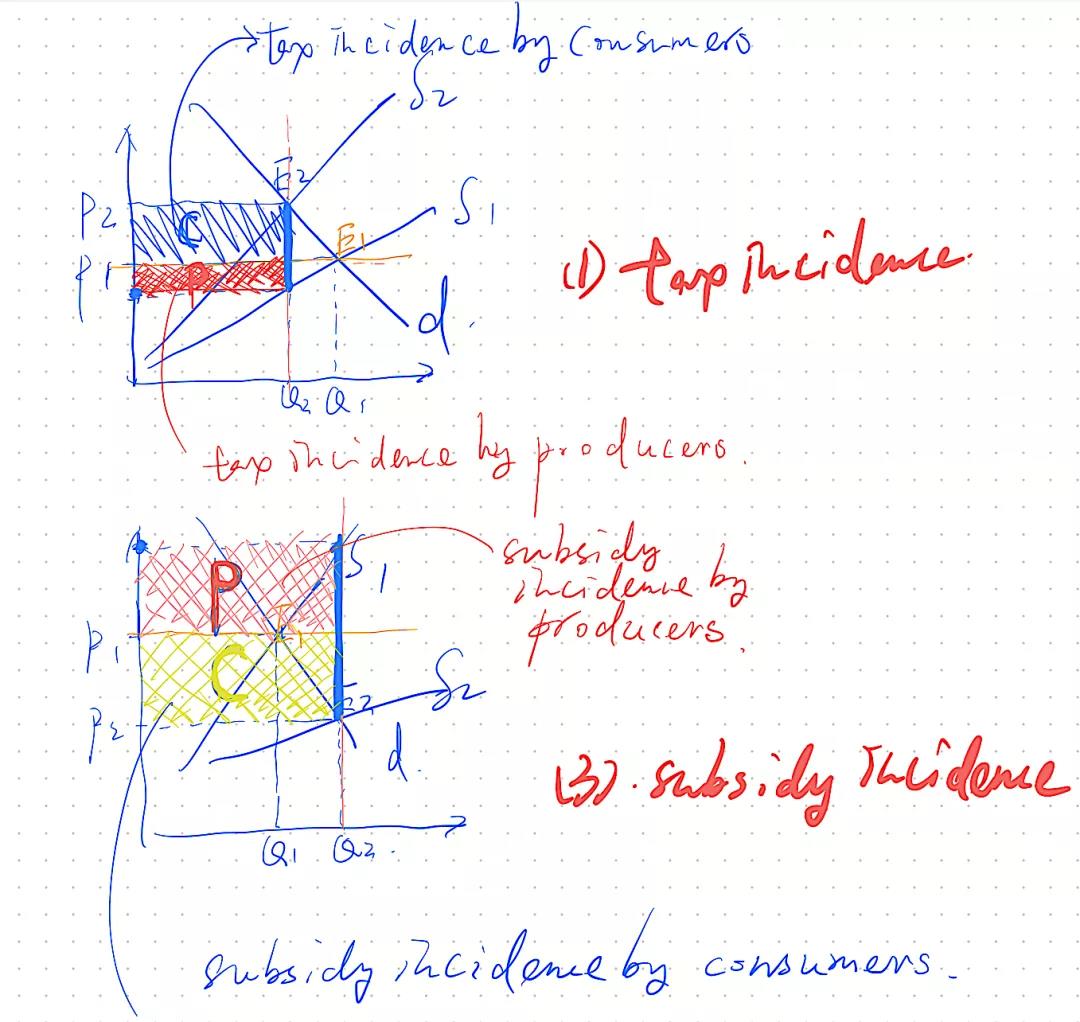 tax incidence by consumers
S2
E2
P2
C
S1
E1
P1
P
(1) tax incidence.
d.
Q2 Q1
tax incidence by producers.
subsidy
incidence by
producers.
S1
P
E1
P1
C
S2
E2
P2
d.
(3). subsidy incidence
Q1 Q2.
subsidy incidence by consumers.